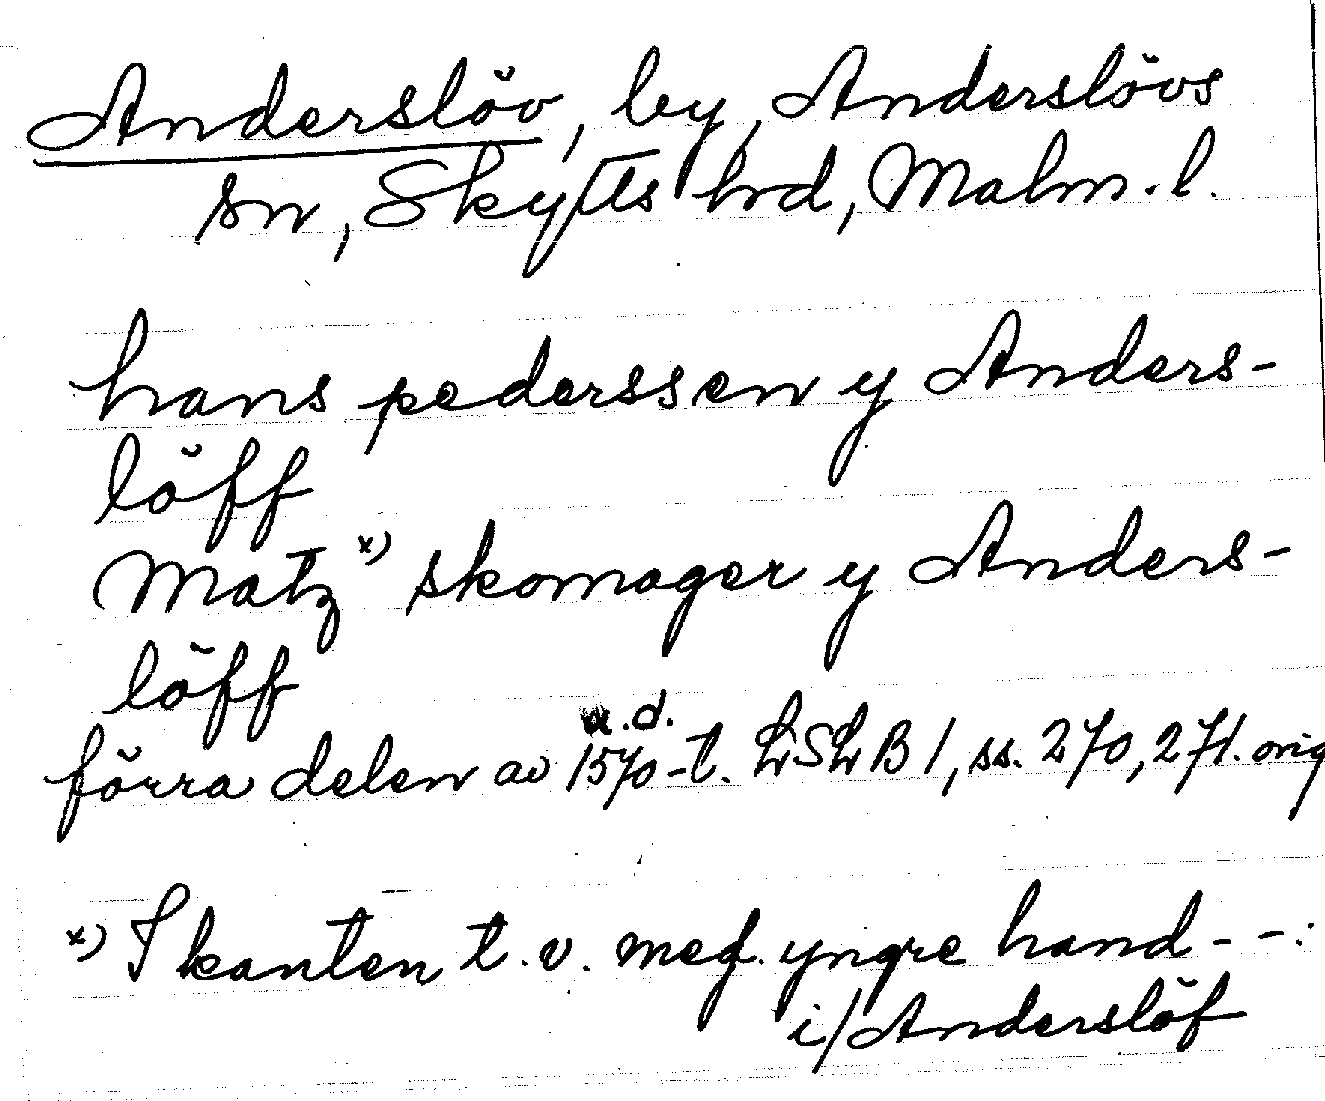 Anderslöv, by, Anderslövs
sn, Skytts hrd, Malm. l.
hans pederssen y Anders-
löff
Matz x) skomager y Anders-
löff
a.d.
förra delen av 1570-t. LSLB 1, ss. 270, 271. orig
x) I kanten t.v. med yngre hand - -:
i/Anderslöf